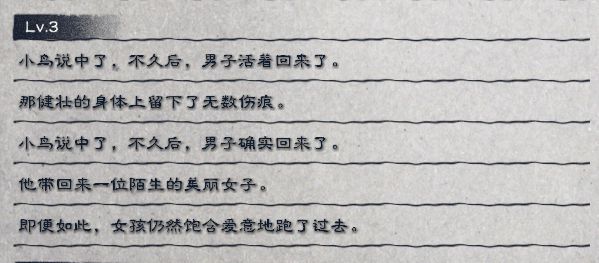 Lv.3
小鸟说中了，不久后，男子活着回来了。
那健壮的身体上留下了无数伤痕。
小鸟说中了，不久后，男子确实回来了。
他带回来一位陌生的美丽女子。
即便如此，女孩仍然饱含爱意地跑了过去。